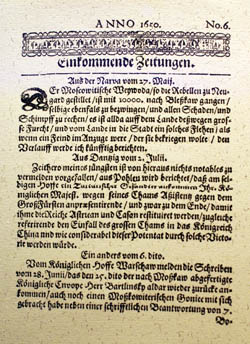 ANNO 1650. No. 6.
Einkommende Zeitungen.
Auß der Narva vom 27. Maij.
Er Moscowitische Weywoda / so die Rebellen zu Neu-
gard gestillet / ist mit 10000. nach Pleßkaw gangen /
selbige ebenfals zu bezwingen / und allen Schaden / und
Schimpff zu rechen / es ist alda auff dem Lande deßwegen gros-
se Furcht / und vom Lande in die Stadt ein solches Flehen / als
wenn ein Feind im Anzuge were / der sie bekriegen wolte / den
Verlauff werde ich künfftig berichten.
Aus Dantzig vom 2. Julii.
Zeithero meines jüngsten ist von hieraus nichts notables zu
vermelden vorgefallen / aus Pohlen wird berichtet / daß am sel-
bigen Hoffe ein Tartarischer Gesandter ankommen Ihr. Kö-
niglichen Majest. wegen seines Chams Assistentz gegen dem
Großfürsten zupræsentirende / und zwar zu dem Ende / damit
ihme die Reiche Astracan und Casan restituiret werden / zugleich
referirende den Einfall des grossen Chams in das Königreich
China und wie considerabel dieser Potentat durch solche Victo-
rie werden würde.
Ein anders vom 6. dito.
Vom Königlichen Hoffe Warschaw melden die Schreiben
vom 28. Junii / das den 25. dito der nach Moskaw abgefertigte
Königliche Envoye Herr Bartlinsky aldar wieder zurücke an-
kommen / auch noch einen Moskowiterschen Gonietz mit sich
gebracht habe neben einer schrifftlichen Beantwortung von 7.
Bo-